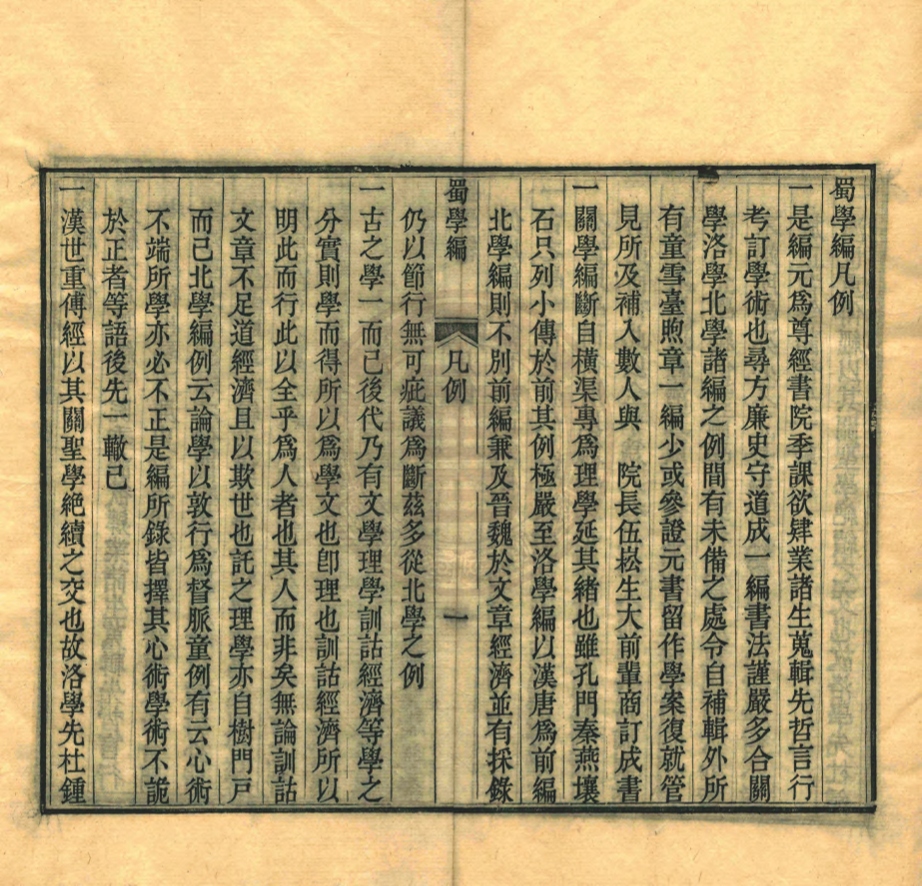 蜀學編凡例
一是編元爲尊經書院季課欲肄業諸生蒐輯先哲言行
考訂學術也尋方廉史守道成一編書法謹嚴多合關
學洛學北學諸編之例間有未備之處令自補輯外所
有童雪臺煦章一編少或參證元書留作學案復就管
見所及補入數人與　院長伍崧生大前輩商訂成書
一關學編斷自橫渠專爲理學延其緒也雖孔門秦燕壤
石只列小傳於前其例極嚴至洛學編以漢唐爲前編
北學編則不別前編兼及晉魏於文章經濟並有採錄
蜀學編　凡例　一
仍以節行無可疵議爲斷茲多從北學之例
一古之學一而已後代乃有文學理學訓詁經濟等學之
分實則學而得所以爲學文也卽理也訓詁經濟所以
明此而行此以全乎爲人者也其人而非矣無論訓詁
文章不足道經濟且以欺世也託之理學亦自樹門戸
而已北學編例云論學以敦行爲督脈童例有云心術
不端所學亦必不正是編所錄皆擇其心術學術不詭
於正者等語後先一轍已
一漢世重傳經以其關聖學絶續之交也故洛學先杜鍾